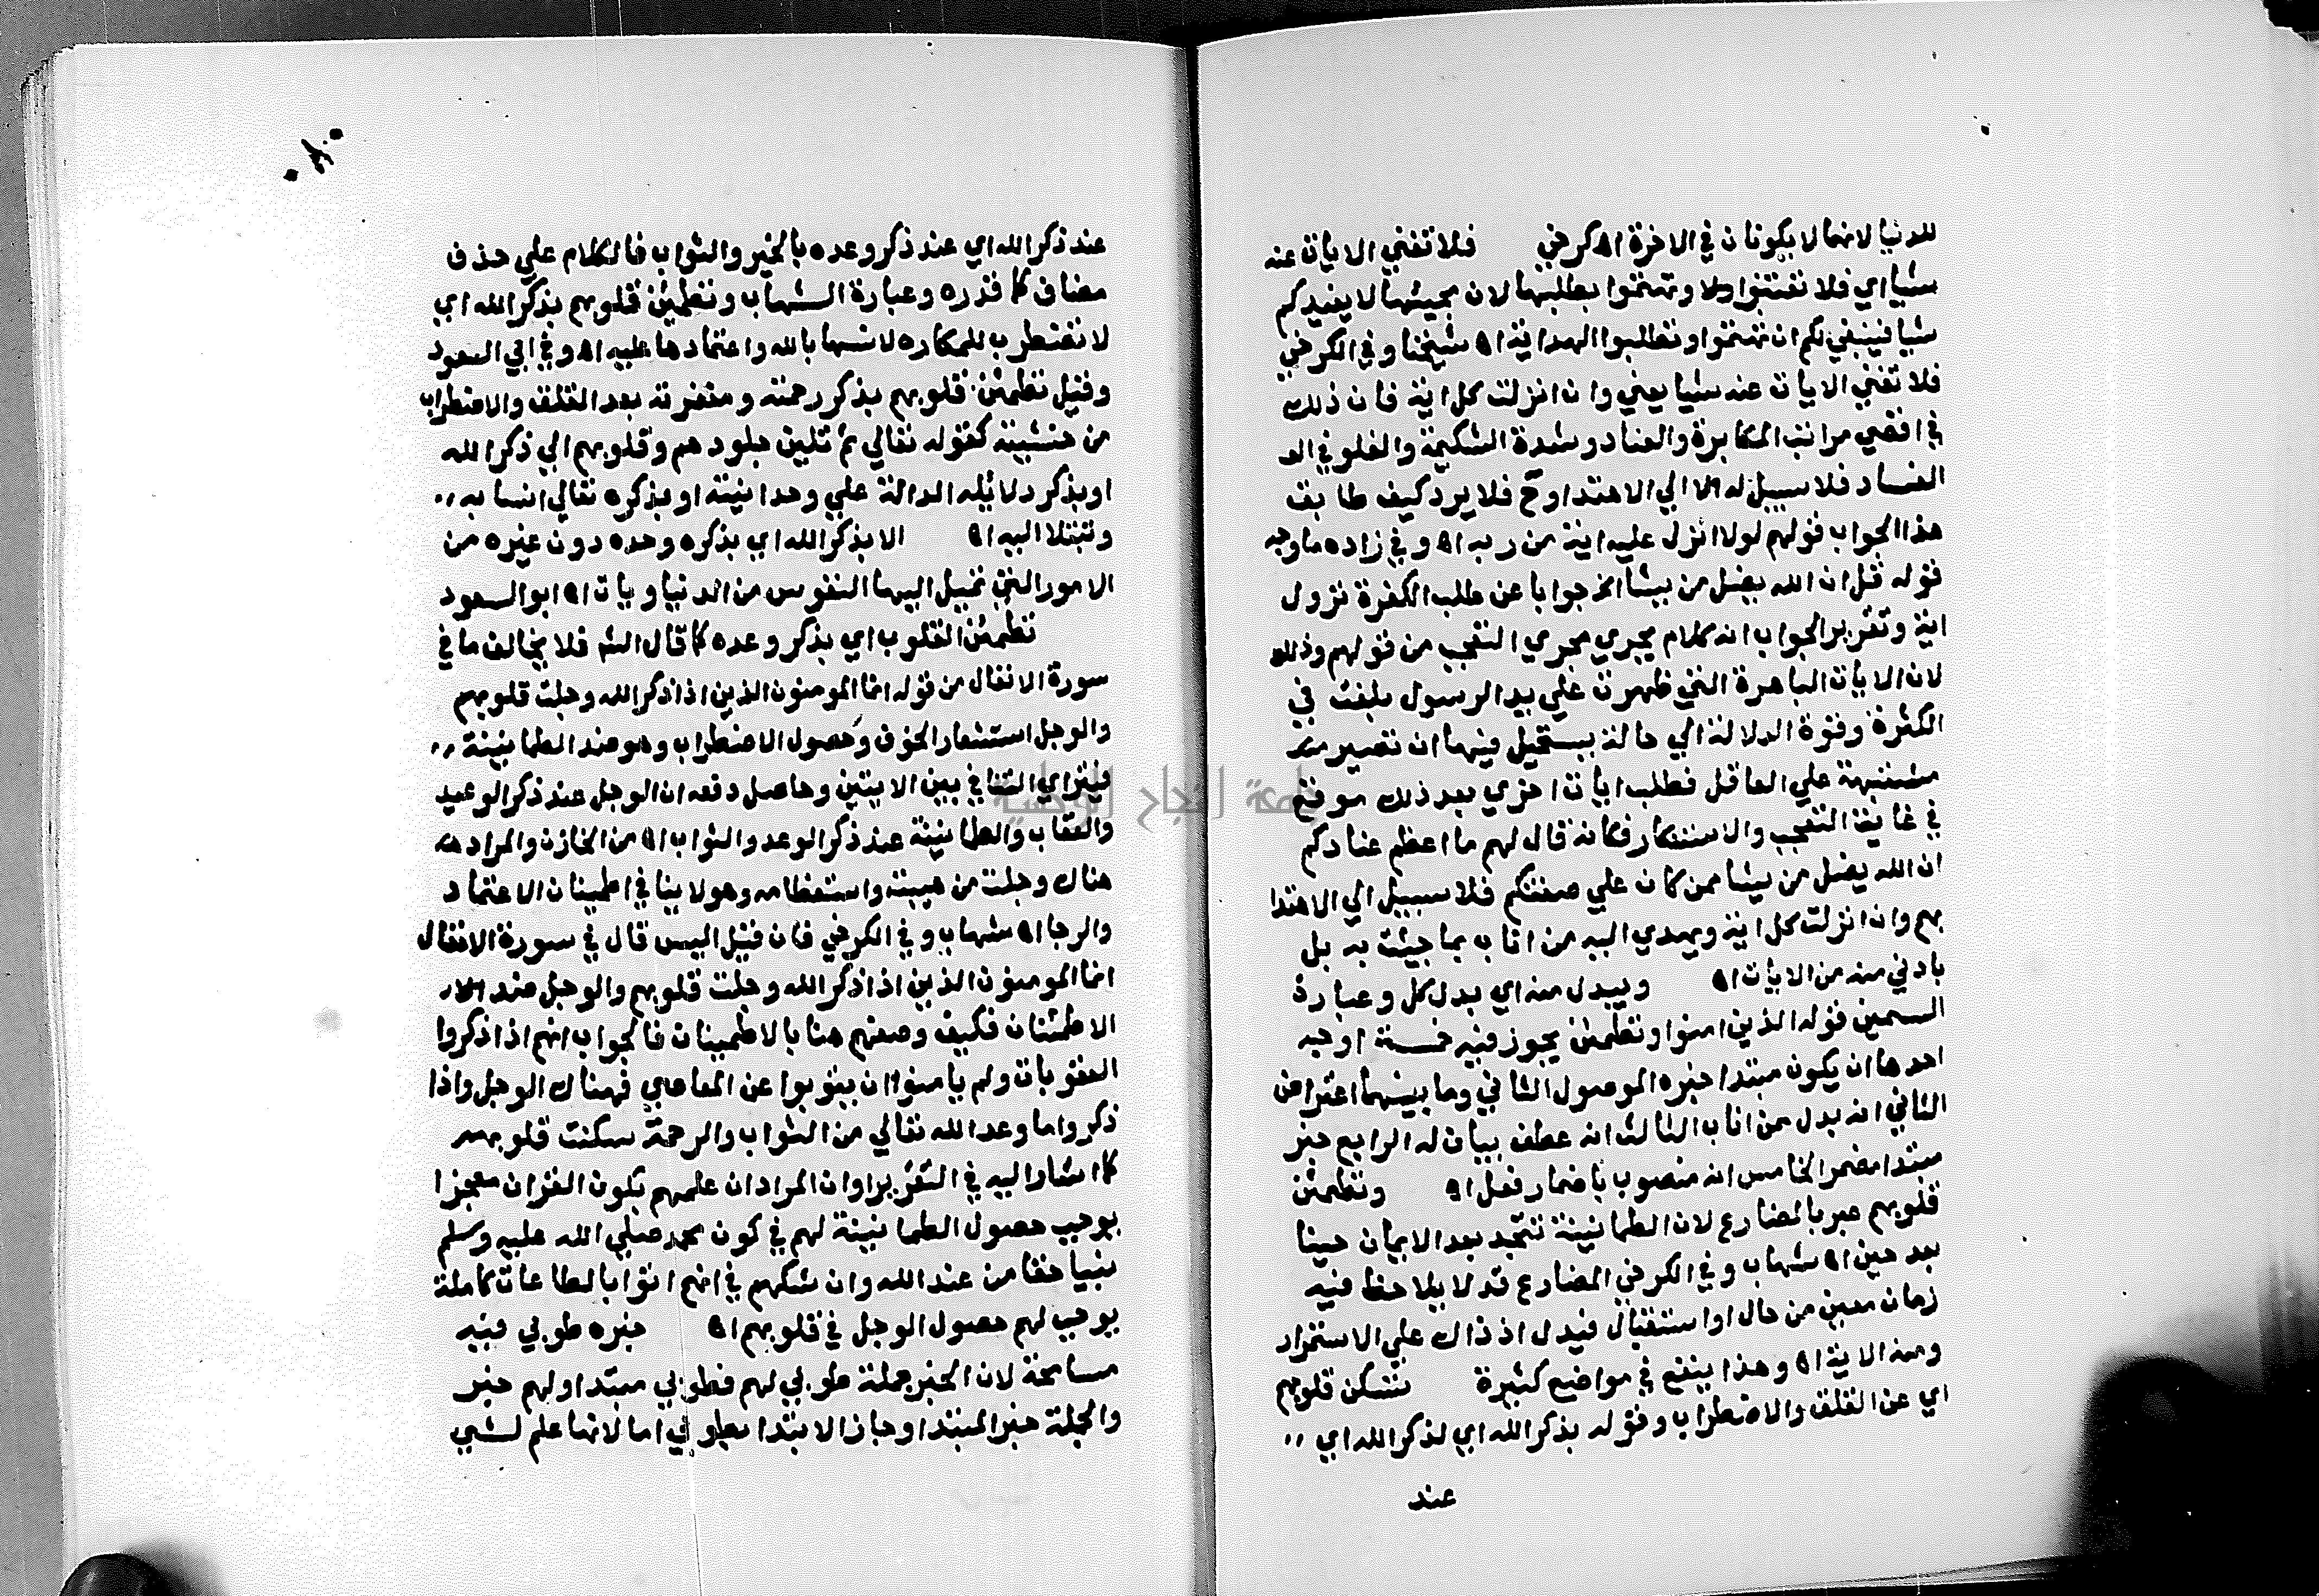 للدنيا لانهما لا يكونان في الاخرة اه كرخي فلا تغني الايات عنه
شيا اي فلا تفتنوا ولا وتهتموا بطلبها لان مجيئها لا يفيدكم
شيا فينبغي لكم ان تهتموا وتطلبوا الهداية اه شيخنا وفي الكرخي
فلا تغني الايات عنه شيا يعني وان انزلت كل اية فان ذلك
في اقصي مراتب المكابرة والعناد وشدة الشكيمة والغلو في الف
الفساد فلا سبيل له الا الي الاهتدا وح فلا يرد كيف طابق
هذا الجواب قولهم لولا انزل عليه اية من ربه اه وفي زاده ما وجه
قوله قل ان الله يضل من يشا الخ جوابا عن طلب الكفرة نزول
اية وتقرير الجواب انه كلام يجري مجري التعجب من قولهم وذلك
لان الايات الباهرة التي ظهرت علي يد الرسول بلغت في
الكثرة وقوة الدلالة الي حالة يستحيل فيها ان تصير
مشتبهة علي العاقل فطلب ايات اخري بعد ذلك موقع
في غاية التعجب والاستنكار فكانه قال لهم ما اعظم عنادكم
ان الله يضل من يشا ممن كان علي صفتكم فلا سبيل الي الاهتدا
بهم وان انزلت كل اية ويهدي اليه من اناب بما جيئت به بل
بادني منه من الايات اه ويبدل منه اي بدل كل وعبارة
السمين قوله الذين امنوا وتطمئن يجوز فيه خمسة اوجه
احدها ان يكون مبتدا خبره الموصول الثاني وما بينهما اعتراض
الثاني انه بدل من اناب الثالث انه عطف بيان له الرابع خبر
مبتدا مضمر الخامس انه منصوب باضمار فعل اه وتطمئن
قلوبهم عبر بالمضارع لان الطمانينة تتجد بعد الايمان حينا
بعد حين اه شهاب وفي الكرخي المضارع قد لا يلاحظ فيه
زمان معين من حال او استقبال فيدل اذ ذاك علي الاستمرار
ومنه الاية اه وهذا ينفع في مواضع كثيرة تسكن قلوبهم
اي عن القلق والاضطراب وقوله بذكر الله اي لذكر الله اي
عند
عند ذكر الله اي عند ذكر وعده بالخير والثواب فالكلام علي حذف
مضاف كما قدره وعبارة الشهاب وتطمئن قلوبهم بذكر الله اي
لا تضطرب للمكاره لانسها بالله واعتمادها عليه اه وفي ابي السعود
وقيل تطمئن قلوبهم بذكر رحمته ومغفرته بعد القلق والاضطراب
من خشيته كقوله تعالي ثم تلين جلودهم وقلوبهم الي ذكر الله
او بذكر دلائله الدالة علي وحدانيته او بذكره تعالي انسا به
وتبتلا اليه اه الا بذكر الله اي بذكره وحده دون غيره من
الامور التي تميل اليها النفوس من الدنيا ويات اه ابو السعود
تطمئن القلوب اي بذكر وعده كما قال الشم فلا يخالف ما في
سورة الانفال من قوله انما المومنون الذين اذا ذكر الله وجلت قلوبهم
والوجل استشعار الخوف وحصول الاضطراب وهو ضد الطمانينة
فيتراي التنافي بين الايتين وحاصل دفعه ان الوجل عند ذكر الوعيد
والعقاب والطمانينة عند ذكر الوعد والثواب اه من الخازن والمراد
هناك وجلت من هيبته واستعظامه وهو لا ينافي اطمينان الاعتماد
والرجا اه شهاب وفي الكرخي فان قيل اليس قال في سورة الانفال
انما المومنون الذين اذا ذكر الله وجلت قلوبهم والوجل ضد الا
الاطمئنان فكيف وصفهم هنا بالاطمينان فالجواب انهم اذا ذكروا
العقوبات ولم يامنوا ان يتوبوا عن المعاصي فهناك الوجل واذا
ذكروا ما وعد الله تعالي من الثواب والرحمة سكنت قلوبهم
كما اشار اليه في التقرير او ان المراد ان علمهم بكون القران معجزا
يوجب حصول الطمانينة لهم في كون محمد صلي الله عليه وسلم
نبيا حقا من عند الله وان شكهم في انهم اتوا بالطاعات كاملة
يوجب لهم حصول الوجل في قلوبهم اه خبره طوبي فيه
مسامحة لان الخبر جملة طوبي لهم فطوبي مبتدا ولهم خبر
والجملة خبر المبتدا وجاز الابتدا بطوبي اما لانها علم لشي